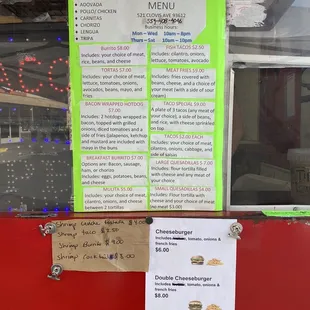 ADOVADA
POLLO/ CHICKEN
CARNITAS
CHORIZO
LENGUA
TRIPA
MENU
521 CLOVIS AVE 93612
Business Hours:
Mon – Wed 10am – 8pm
Thurs – Sat 10am – 10pm
Burrito $8.00
Includes: your choice of meat, rice, beans, and cheese
TORTAS $7.00
Includes: your choice of meat, lettuce, tomatoes, onions, avocados, beans, mayo, and fries.
BACON WRAPPED HOTDOG $7.00
Includes: 2 hotdogs wrapped in bacon, topped with grilled onions, diced tomatoes and a side of fries. Jalapenos, ketchup and mustard are included with mayo in the buns
BREAKFAST BURRITO $7.00
Options are: Bacon, sausage, ham, or churrizo
Includes: eggs, potatoes, beans, and cheese
MULITA $5.00
Includes: choice of meat, cilantro, onions, and cheese between 2 tortillas
FISH TACOS $2.50
Includes: cilantro, onions, lettuce, tomatoes, avocado
MEAT FRIES $9.00
Includes: fries covered with beans, cheese, and a choice of your meat (with a side of sour cream)
TACO SPECIAL $9.00
A plate of 3 tacos (any meat of your choice), a side of beans, and rice, with cheese sprinkled on top
TACOS $2.00 EACH
Includes: choice of meat, cilantro, onions, cabbage, and side of salsas
LARGE QUESADILLAS $7.00
Flour tortilla filled with cheese and any meat of your choice.
SMALL QUESADILLAS $4.00
Flour tortilla filled with cheese and your choice of meat (no meat $3.00)
shrimp taco $3.50
shrimp Burrito $9.00
shrimp cocktail $
Cheeseburger
Includes tomato, onions & french fries
$6.00
Double Cheeseburger
Includes tomato, onions & french fries
$8.00